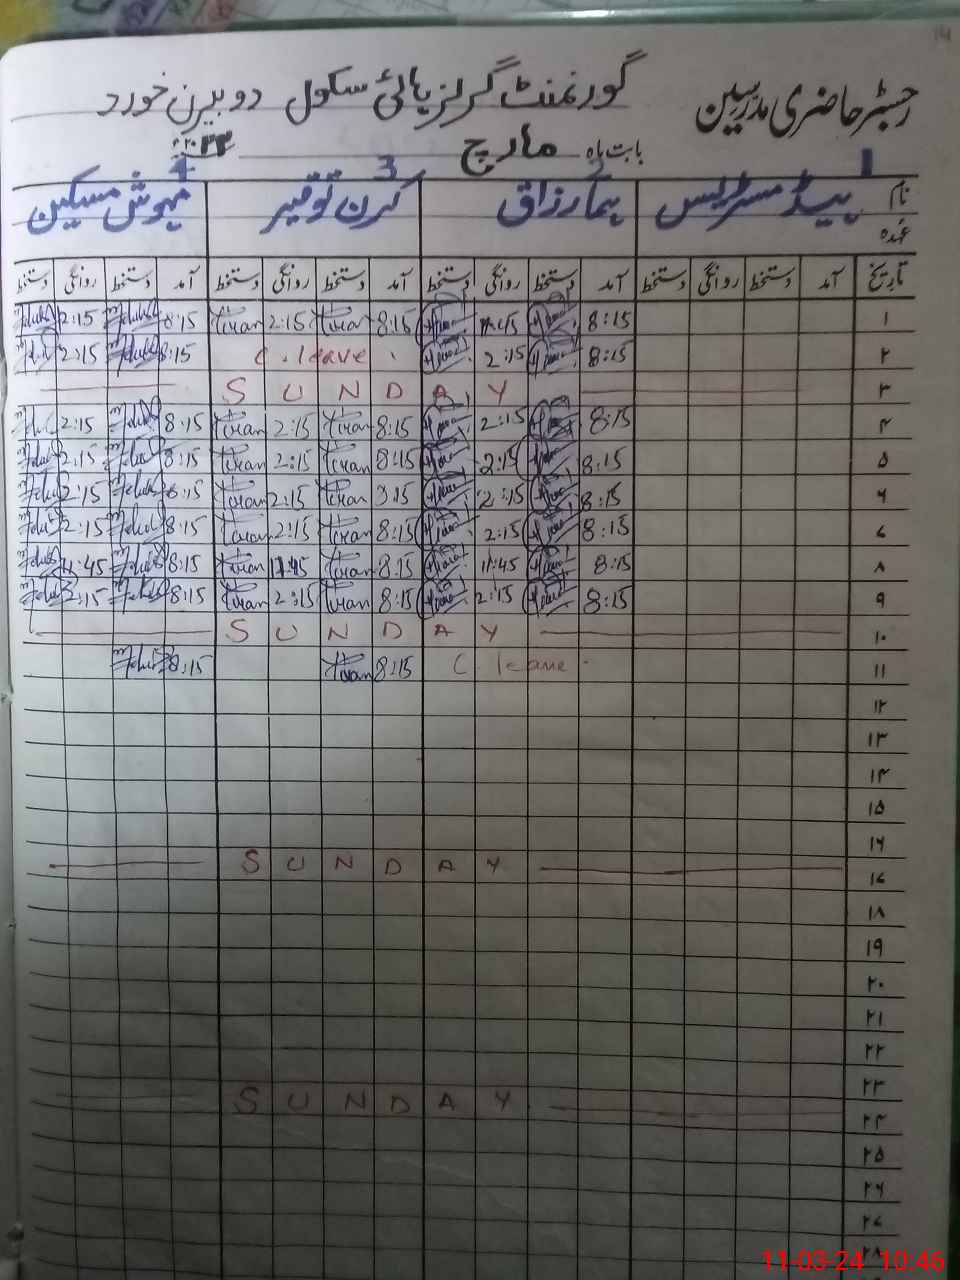 رجسٹر حاضری مدرسین گورنمنٹ گرلز ہائی سکول دوبیرن خورد
بابت ماہ مارچ
1 2 3 4
نام ہیڈ مسٹریس ہما رزاق کرن توقیر مہوش مسکین
عہدہ
تاریخ آمد دستخط روانگی دستخط آمد دستخط روانگی دستخط آمد دستخط روانگی دستخط آمد دستخط روانگی دستخط
۱ 8:15 11:45 8:15 Kiran 2:15 Kiran 8:15 2:15
۲ 8:15 2:15 C. leave 8:15 2:15
۳ SUNDAY
۴ 8:15 2:15 8:15 Kiran 2:15 Kiran 8:15 2:15
۵ 8:15 2:15 8:15 Kiran 2:15 Kiran 8:15 2:15
۶ 8:15 2:15 Kiran 2:15 Kiran 8:15 2:15
۷ 8:15 2:15 8:15 Kiran 2:15 Kiran 8:15 2:15
۸ 8:15 11:45 8:15 Kiran 11:45 Kiran 8:15 11:45
۹ 8:15 2:15 8:15 Kiran 2:15 Kiran 8:15 2:15
۱۰ SUNDAY
۱۱ C. leave 8:15 Kiran 8:15
۱۲
۱۳
۱۴
۱۵
۱۶
۱۷ SUNDAY
۱۸
۱۹
۲۰
۲۱
۲۲
۲۳
۲۴ SUNDAY
۲۵
۲۶
۲۷
۲۸
11-03-24 10:46